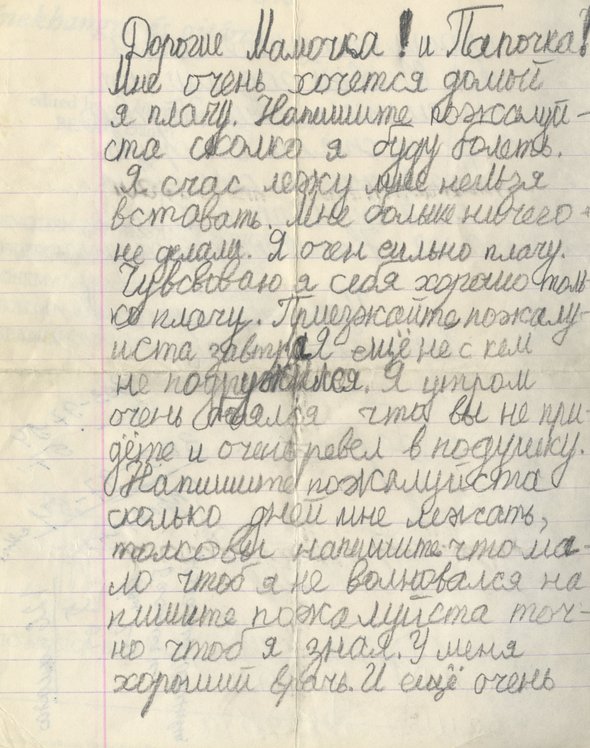 Дорогие Мамочка! и Папочка!
Мне очень хочется домый
я плачу. Напишите пожалуй-
ста сколко я буду болеть.
Я счас лежу мне нельзя
вставать. Мне больше ничего
не делали. Я очен сильно плачу.
Чувсвоваю я себя хорошо толь
ко плачу. Приезжайте пожалу-
иста завтра Я ещё не с кем
не подружился. Я утром
очень боялся что вы не при-
дёте и очень ревел в подушку.
Напишите пожалуйста
сколько дней мне лежать,
напишите что ма-
ло чтоб я не волновался на
пишите пожалуйста точ-
но чтоб я знал. У меня
хороший врачь. И ещё очень